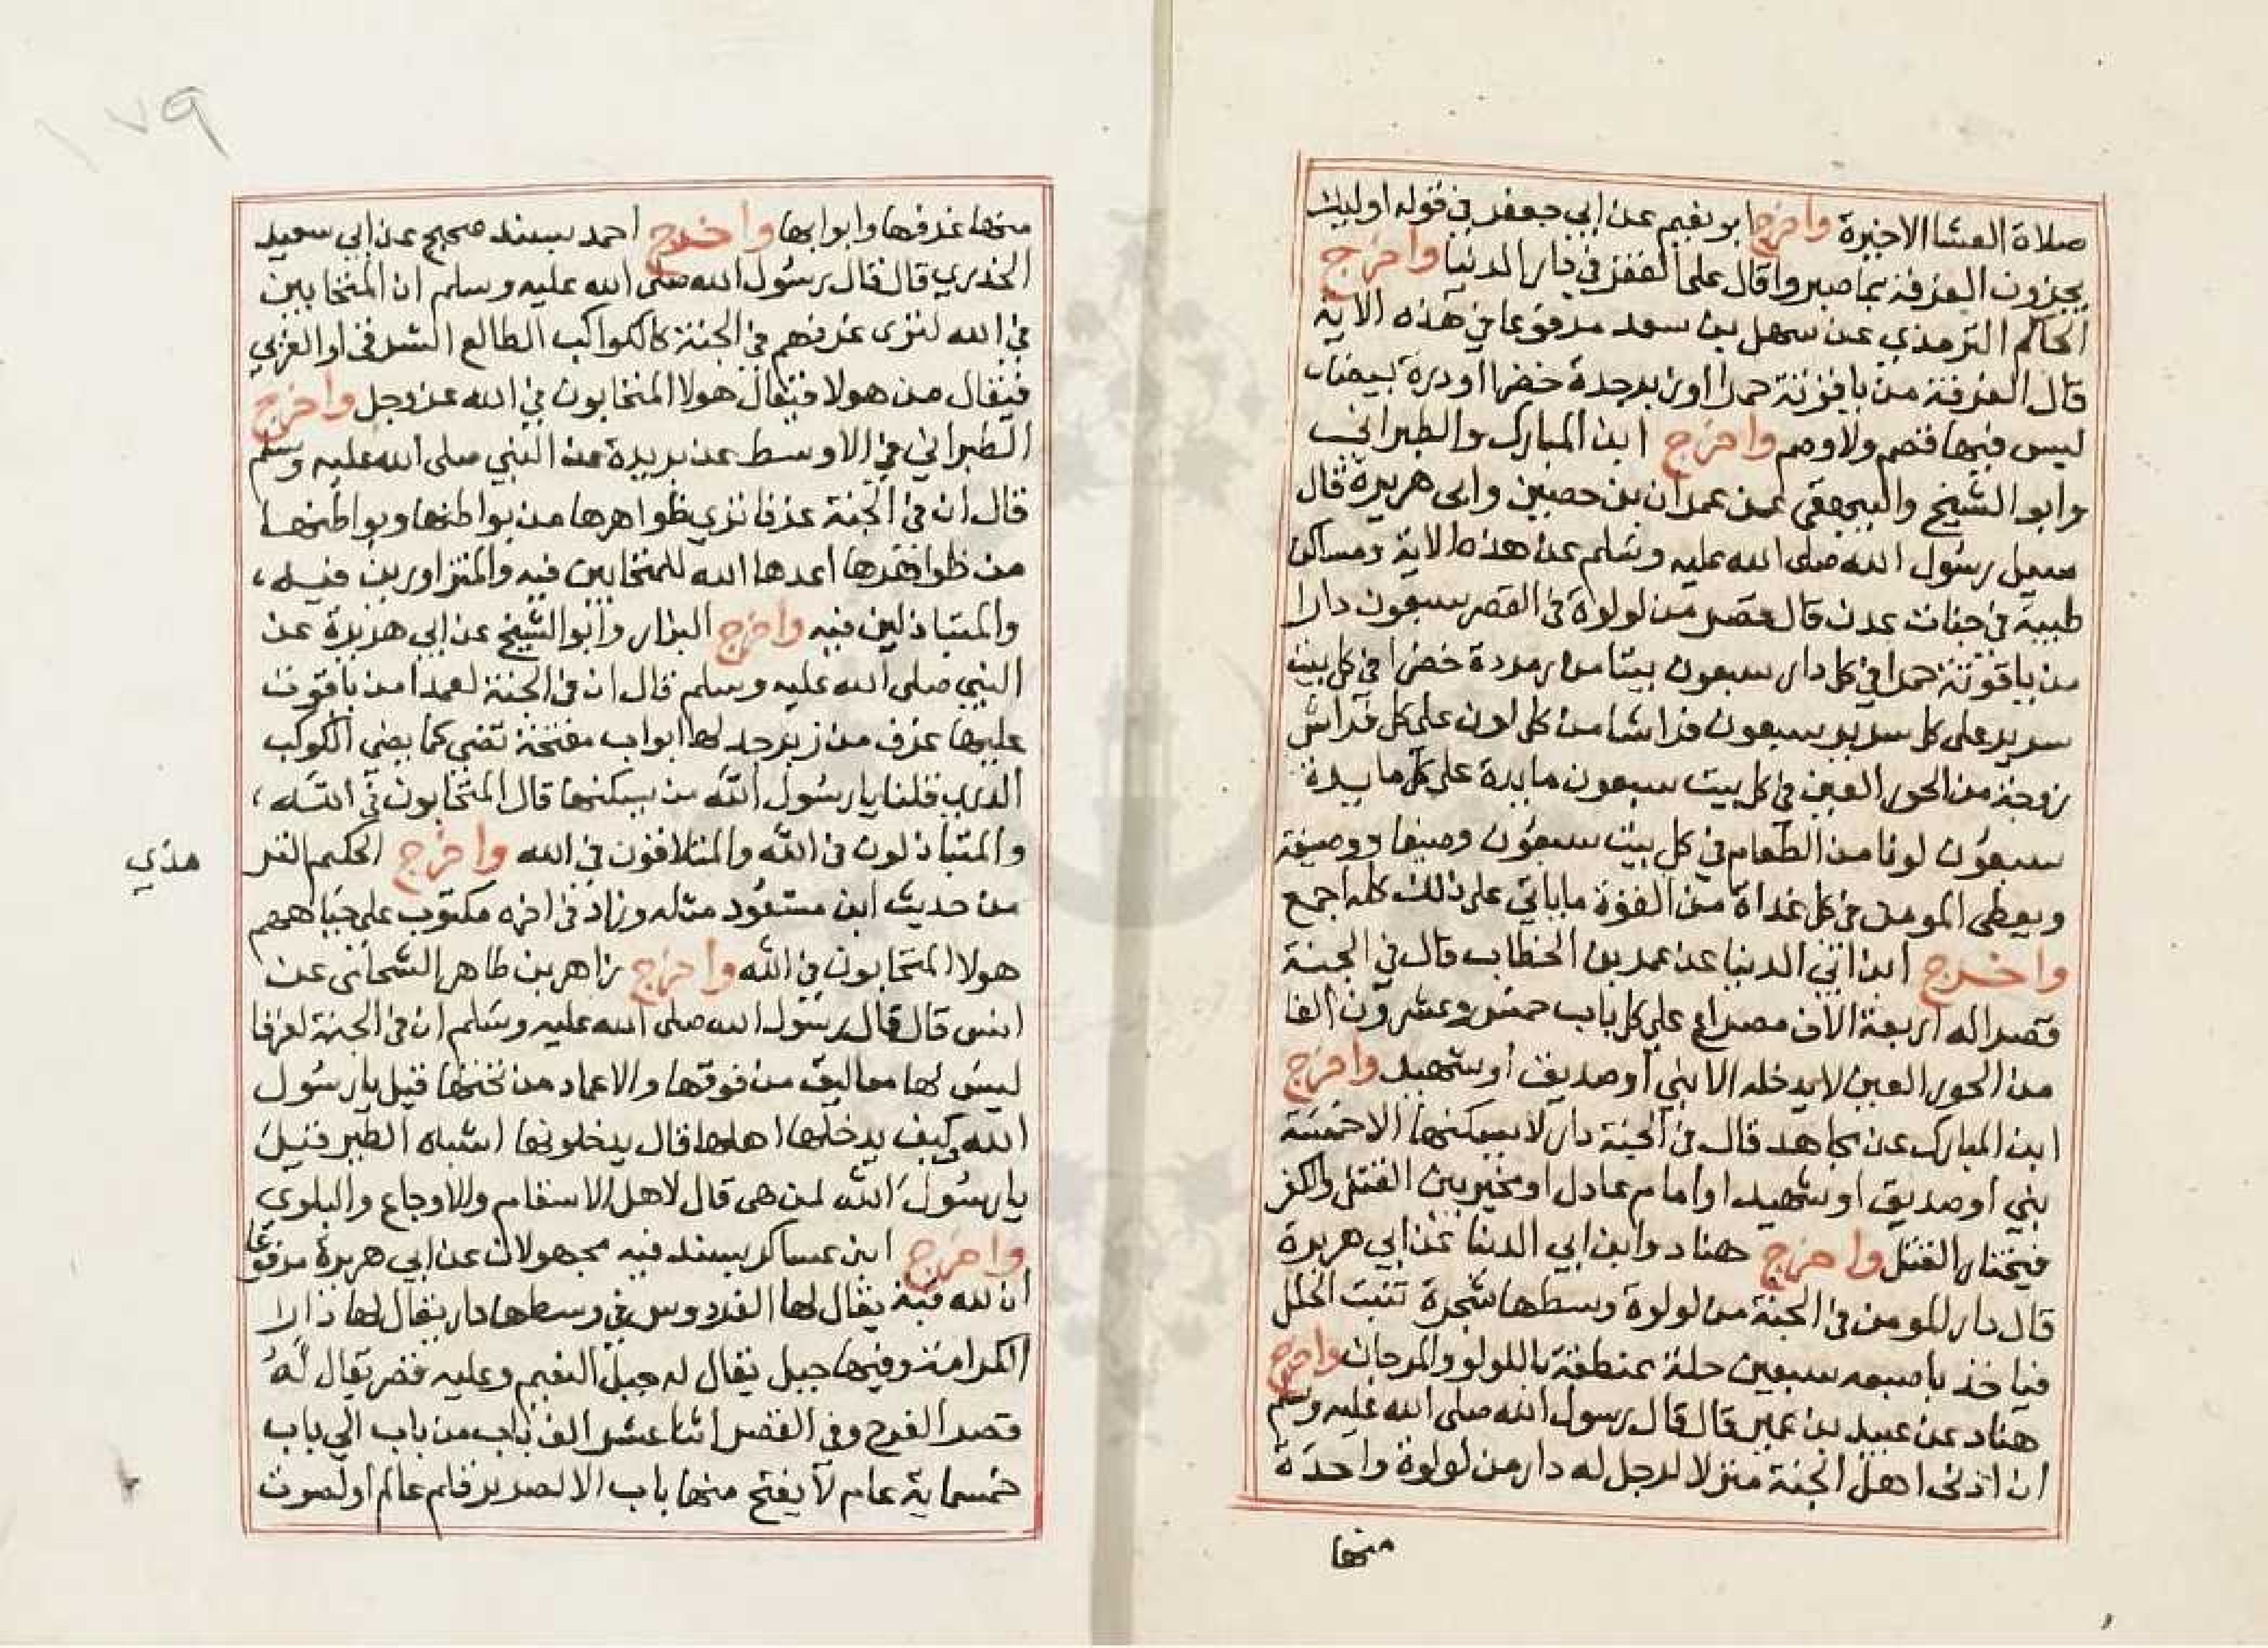 صلاة العشا الاخيرة واخرج ابو نعيم عن ابي جعفر في قوله اوليك
يجزون الغرفة بما صبروا قال على الفقر في دار الدنيا واخرج
الحاكم الترمذي عن سهل بن سعد مرفوعا في هذه الاية
قال الغرفة من ياقوتة حمرا او زبرجدة خضرا او درة بيضا
ليس فيها فصم ولا وصم واخرج ابن المبارك والطبراني
وابو الشيخ والبيهقي عن عمران بن حصين وابى هريرة قال
سيل رسول الله صلى الله عليه وسلم عن هذه الاية ومساكن
طيبة في جنات عدن قال قصر من لولوة في القصر سبعون دارا
من ياقوتة حمرا في كل دار سبعون بيتا من زمردة خضرا في كل بيت
سرير على كل سرير سبعون فراشا من كل لون على كل فراش
زوجة من الحور العين في كل بيت سبعون مايدة على كل مايدة
سبعون لونا من الطعام في كل بيت سبعون وصيفا ووصيفة
ويعطى المومن في كل غداة من القوة ما ياتي على ذلك كله اجمع
واخرج ابن ابي الدنيا عن عمر بن الخطاب قال في الجنة
قصر اله اربعة الاف مصراع على كل باب خمس وعشرون الفا
من الحور العين لا يدخله الا نبي او صديق او شهيد واخرج
ابن المبارك عن مجاهد قال في الجنة دار لا يسكنها الا خمسة
نبي او صديق او شهيد او امام عادل او مخير بين القتل والكفر
فيختار القتل واخرج هناد وابن ابي الدنيا عن ابي هريرة
قال دار المومن في الجنة من لولوة وسطها شجرة تنبت الحلل
فياخذ باصبعه سبعين حلة ممنطقة باللولو والمرجان واخرج
هناد عن عبيد بن عمير قال قال رسول الله صلى الله عليه وسلم
ان ادنى اهل الجنة منزلا لرجل له دار من لولوة واحدة
منها
١٧٩
منها غرفها وابوابها واخرج احمد بسند صحيح عن ابي سعيد
الخدري قال قال رسول الله صلى الله عليه وسلم ان المتحابين
في الله لترى غرفهم في الجنة كالكواكب الطالع الشرقي او الغربي
فيقال من هولا فيقال هولا المتحابون في الله عز وجل واخرج
الطبراني في الاوسط عن بريدة عن النبي صلى الله عليه وسلم
قال ان في الجنة غرفا ترى ظواهرها من بواطنها وبواطنها
من ظواهرها اعدها الله للمتحابين فيه والمتزاورين فيه
والمتباذلين فيه واخرج البزار وابو الشيخ عن ابي هريرة عن
النبي صلى الله عليه وسلم قال ان في الجنة لعمدا من ياقوت
عليها غرف من زبرجد لها ابواب مفتحة تضي كما يضي الكوكب
الدري قلنا يا رسول الله من يسكنها قال المتحابون في الله
والمتباذلون في الله والمتلاقون في الله واخرج الحكيم التر
مذي
من حديث ابن مسعود مثله وزاد في اخره مكتوب على جباههم
هولا المتحابون في الله واخرج زاهر بن طاهر الشحانى عن
انس قال قال رسول الله صلى الله عليه وسلم ان في الجنة لغرفا
ليس لها معاليق من فوقها ولا عماد من تحتها قيل يا رسول
الله وكيف يدخلها اهلها قال يدخلونها اشباه الطير قيل
يا رسول الله لمن هي قال لاهل الاسقام والاوجاع والبلوى
واخرج ابن عساكر بسند فيه مجهولان عن ابي هريرة مرفوعا
ان لله قبة يقال لها الفردوس في وسطها دار يقال لها دار ا
الكرامة وفيها جبل يقال له جبل النعيم وعليه قصر يقال له
قصر الفرح وفي القصر اثنا عشر الف باب من باب الى باب
خمسماية عام لا يفتح منها باب الا لصرير قلم عالم او لصوت